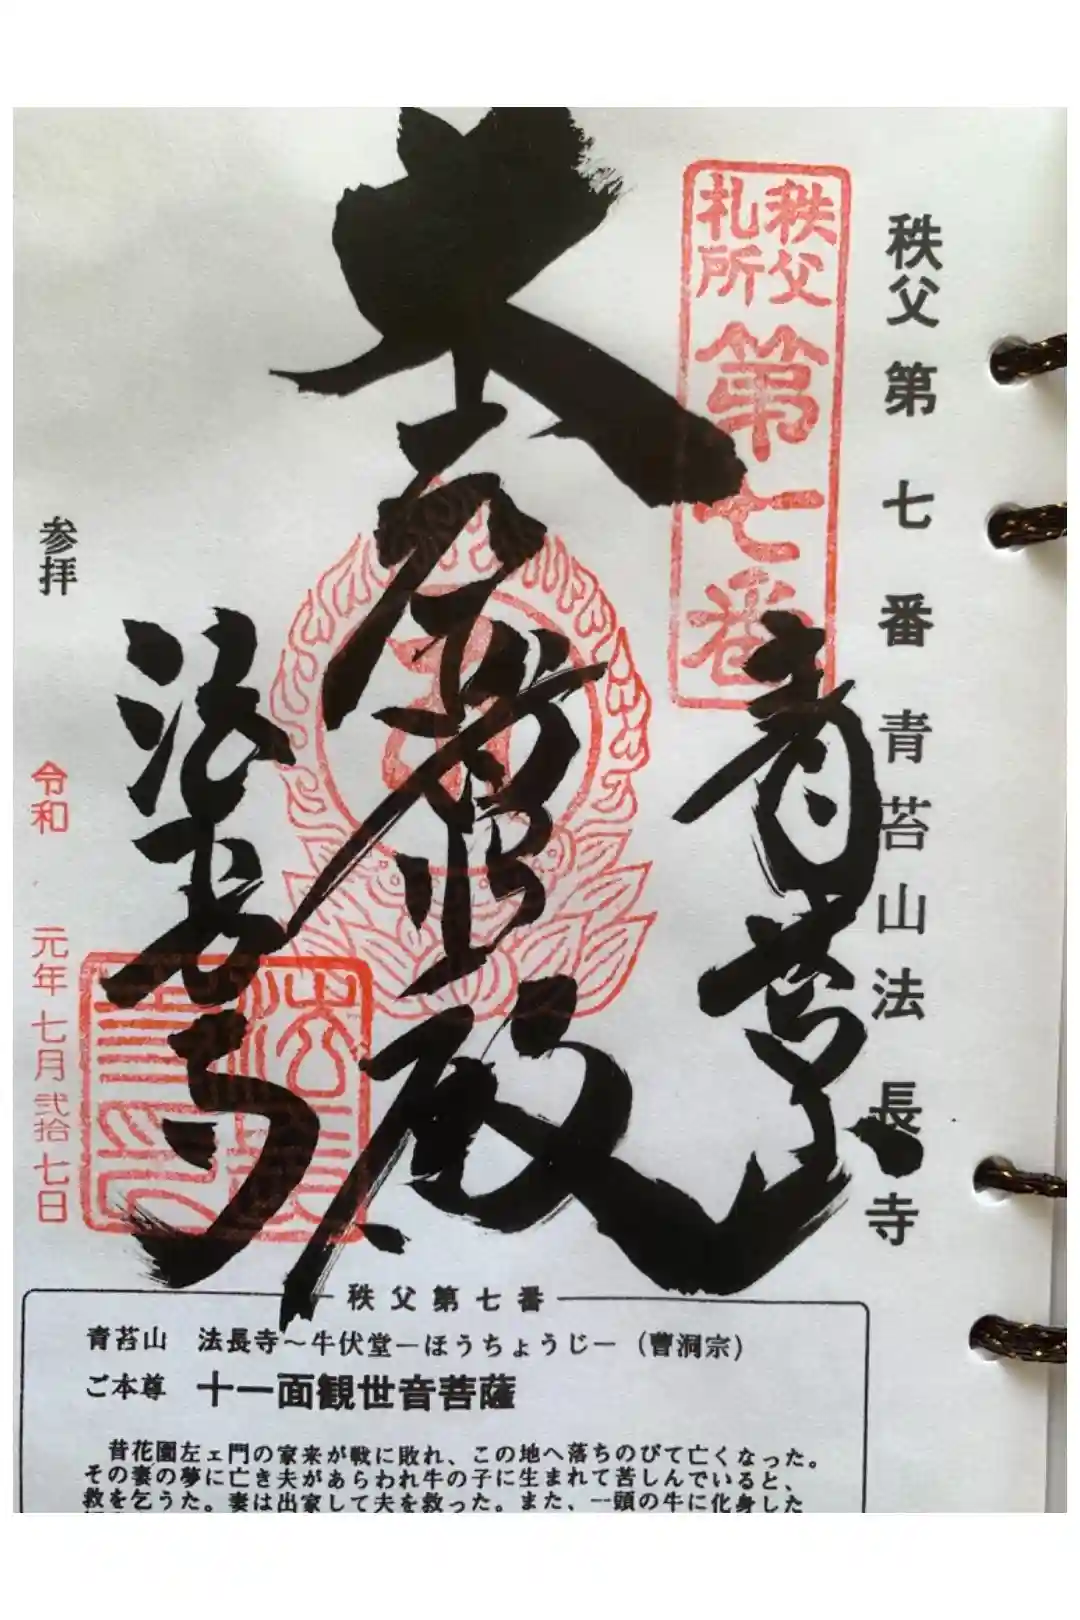 秩父第七番青苔山法長寺
秩父
札所
第七番
青苔山
大悲殿
法長寺
参拝
令和 元年七月弐拾七日
秩父第七番
青苔山 法長寺～牛伏堂－ほうちょうじ－（曹洞宗）
ご本尊 十一面観世音菩薩
昔花園左ェ門の家来が戦に敗れ、この地へ落ちのびて亡くなった。
その妻の夢に亡き夫があらわれ牛の子に生まれて苦しんでいると、
救を乞うた。妻は出家して夫を救った。また、一頭の牛に化身した